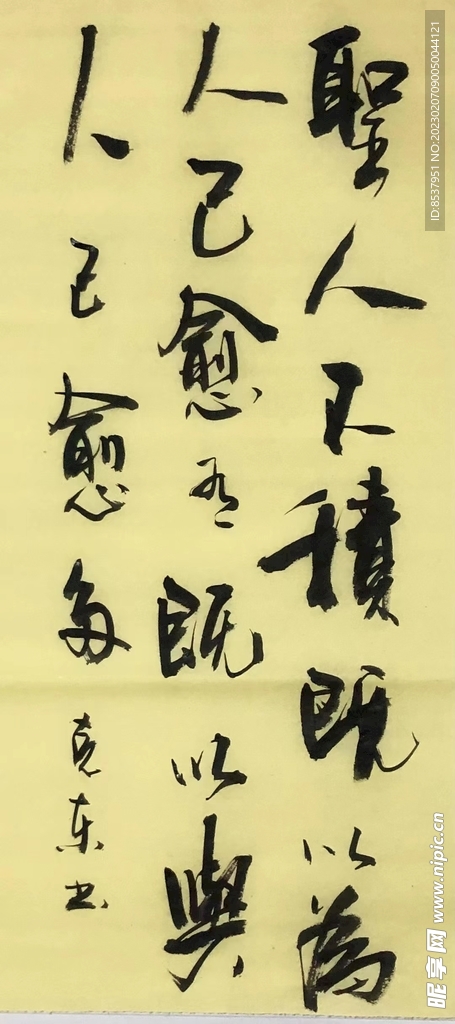 聖人不積既以為
人己愈有既以與
人己愈多 克东书
ID:8537951 NO:20230207090050044121
昵享网 www.nipic.cn